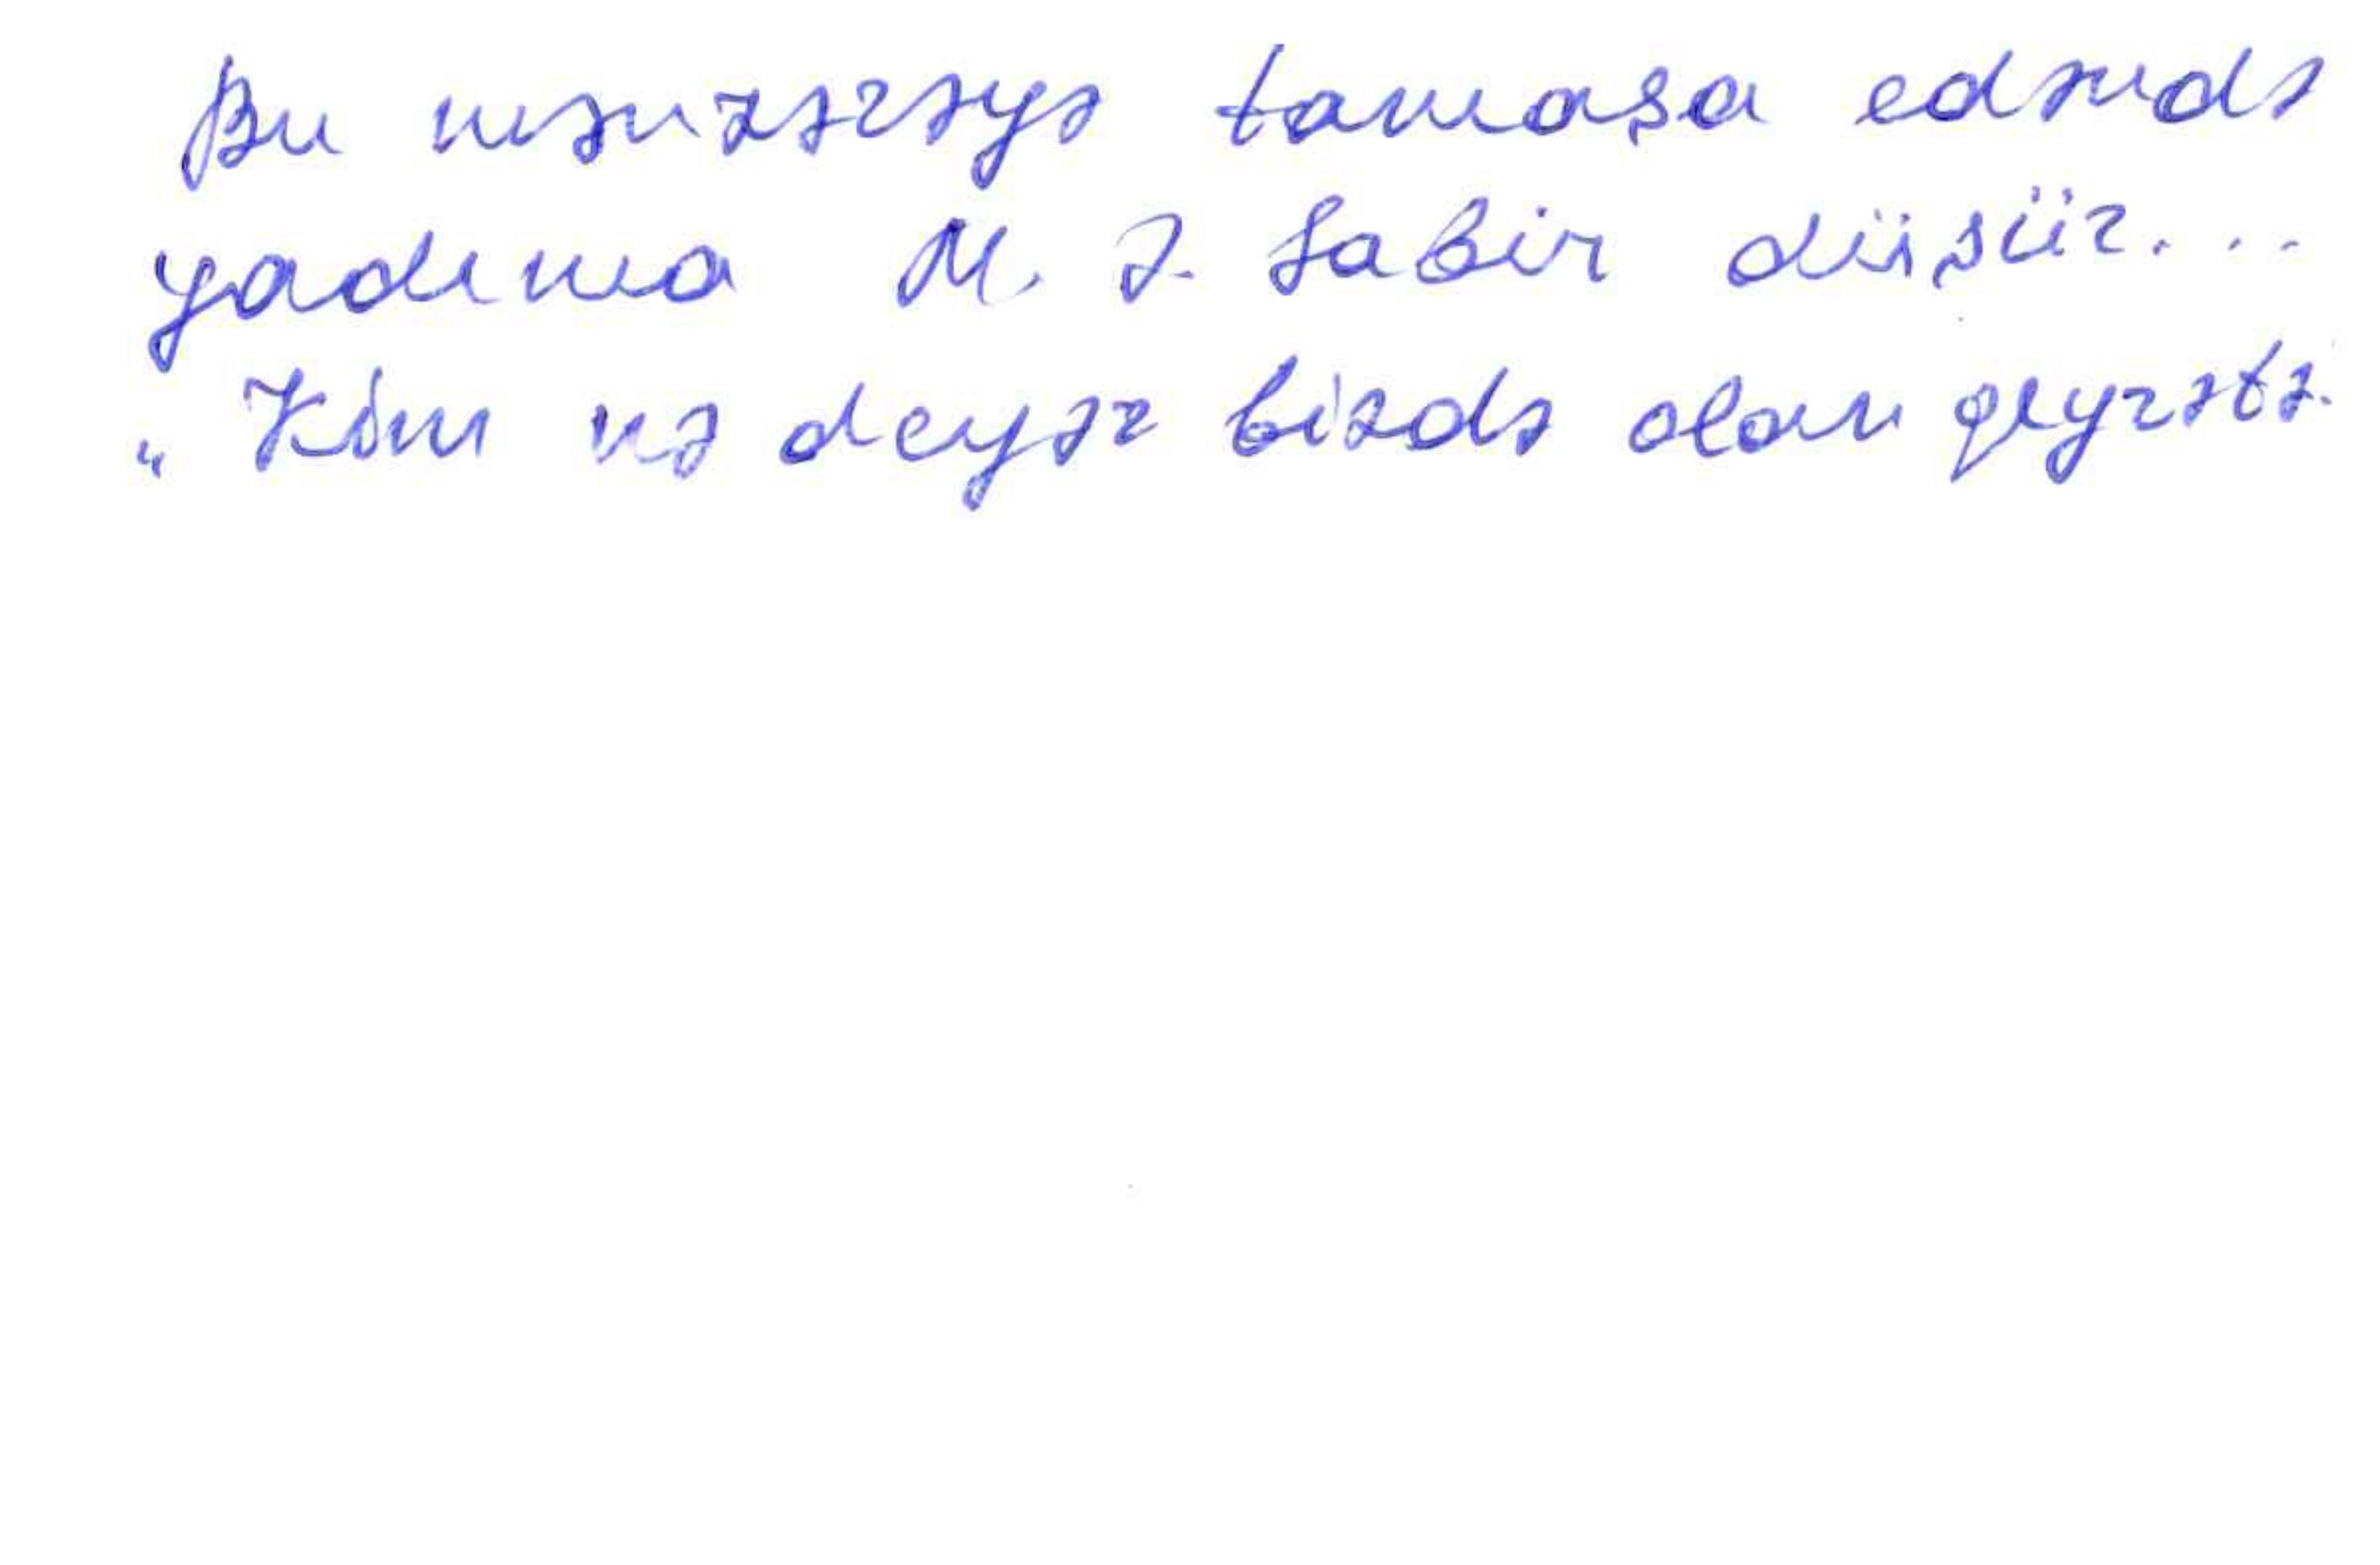 Bu mənzərəyə tamaşa edəndə
yadıma M. Ə. Sabir düşür...
„Kim nə deyər bizdə olan qeyrətə.